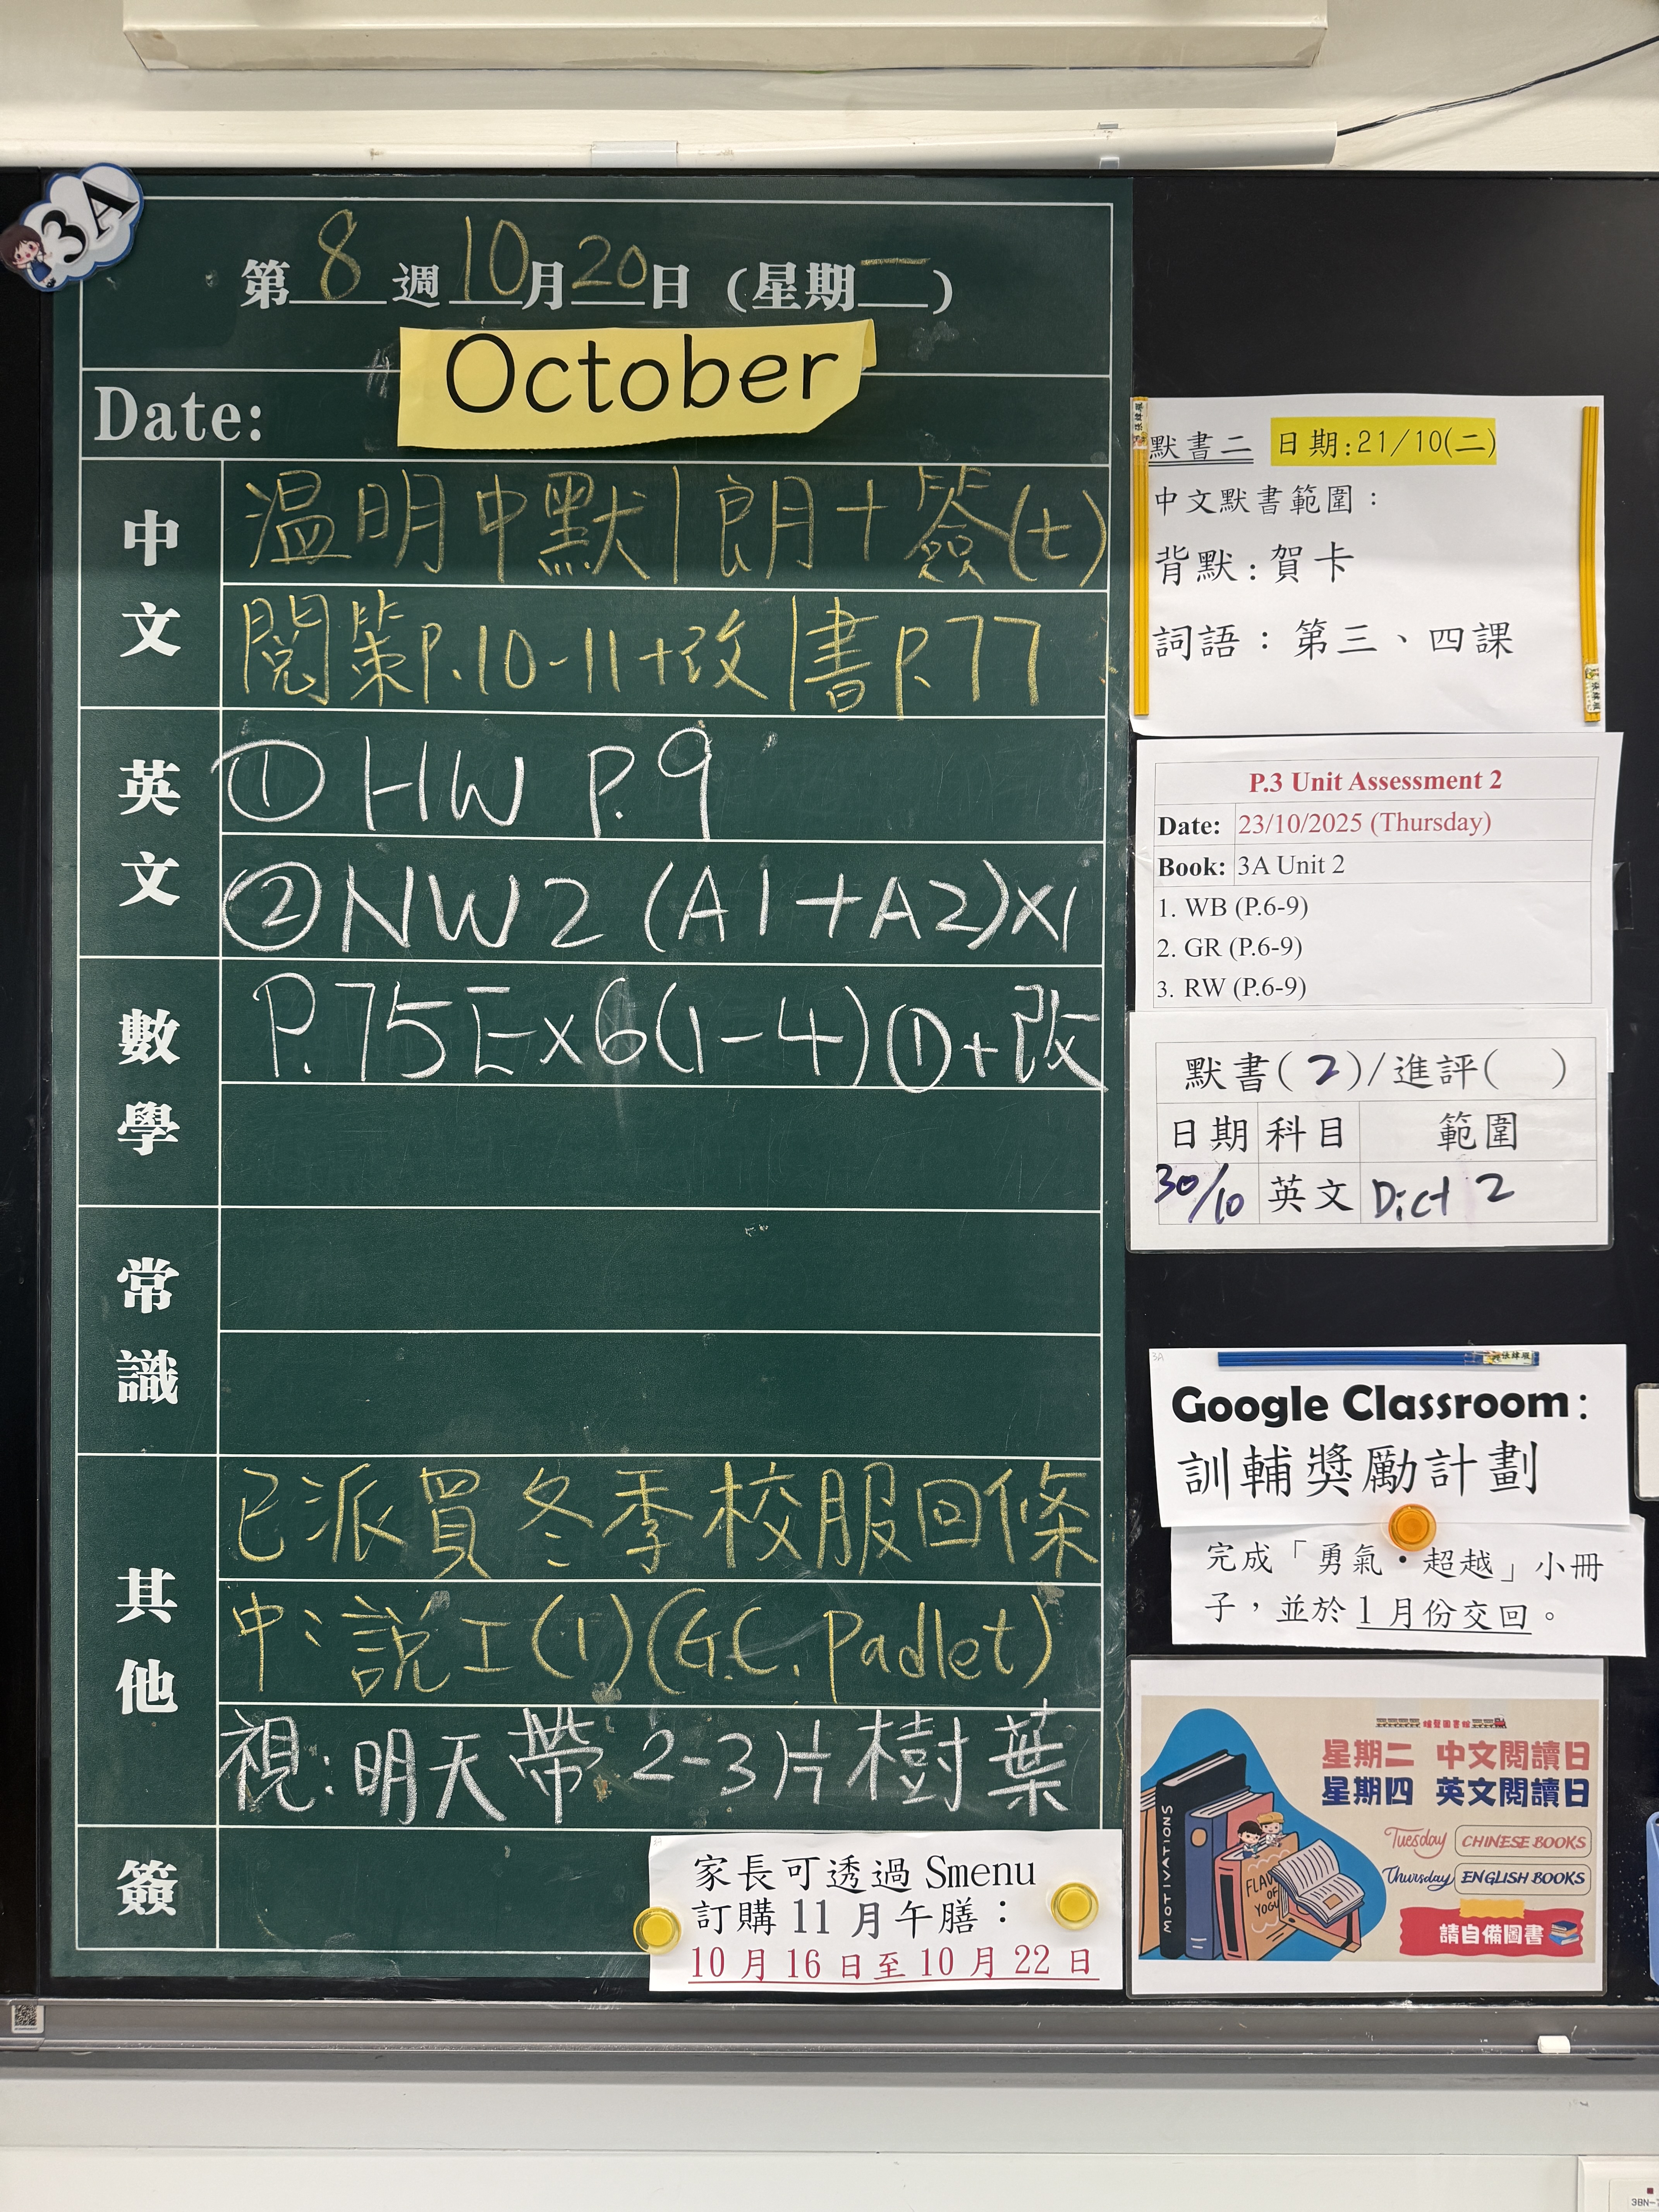 3A
第8週10月20日(星期一)
October
Date:
中文
温明中默|朗+簽(七)
閱策P.10-11+改|書P.77
英文
① HW P.9
② NW2 (A1+A2)x1
數學
P.75Ex6(1-4)①+改
常識
其他
已派買冬季校服回條
中:說工(1)(G.C. Padlet)
視:明天帶2-3片樹葉
簽
家長可透過 Smenu
訂購 11 月午膳:
10 月 16 日至 10 月 22 日
默書二 日期:21/10(二)
中文默書範圍:
背默:賀卡
詞語:第三、四課
P.3 Unit Assessment 2
Date: 23/10/2025 (Thursday)
Book: 3A Unit 2
1. WB (P.6-9)
2. GR (P.6-9)
3. RW (P.6-9)
默書(2)/進評( )
日期 科目 範圍
30/10 英文 Dict 2
3A
Google Classroom:
訓輔獎勵計劃
完成「勇氣・超越」小冊
子,並於 1 月份交回。
星期二 中文閱讀日
星期四 英文閱讀日
Tuesday CHINESE BOOKS
Thursday ENGLISH BOOKS
請自備圖書
MOTIVATIONS
OF